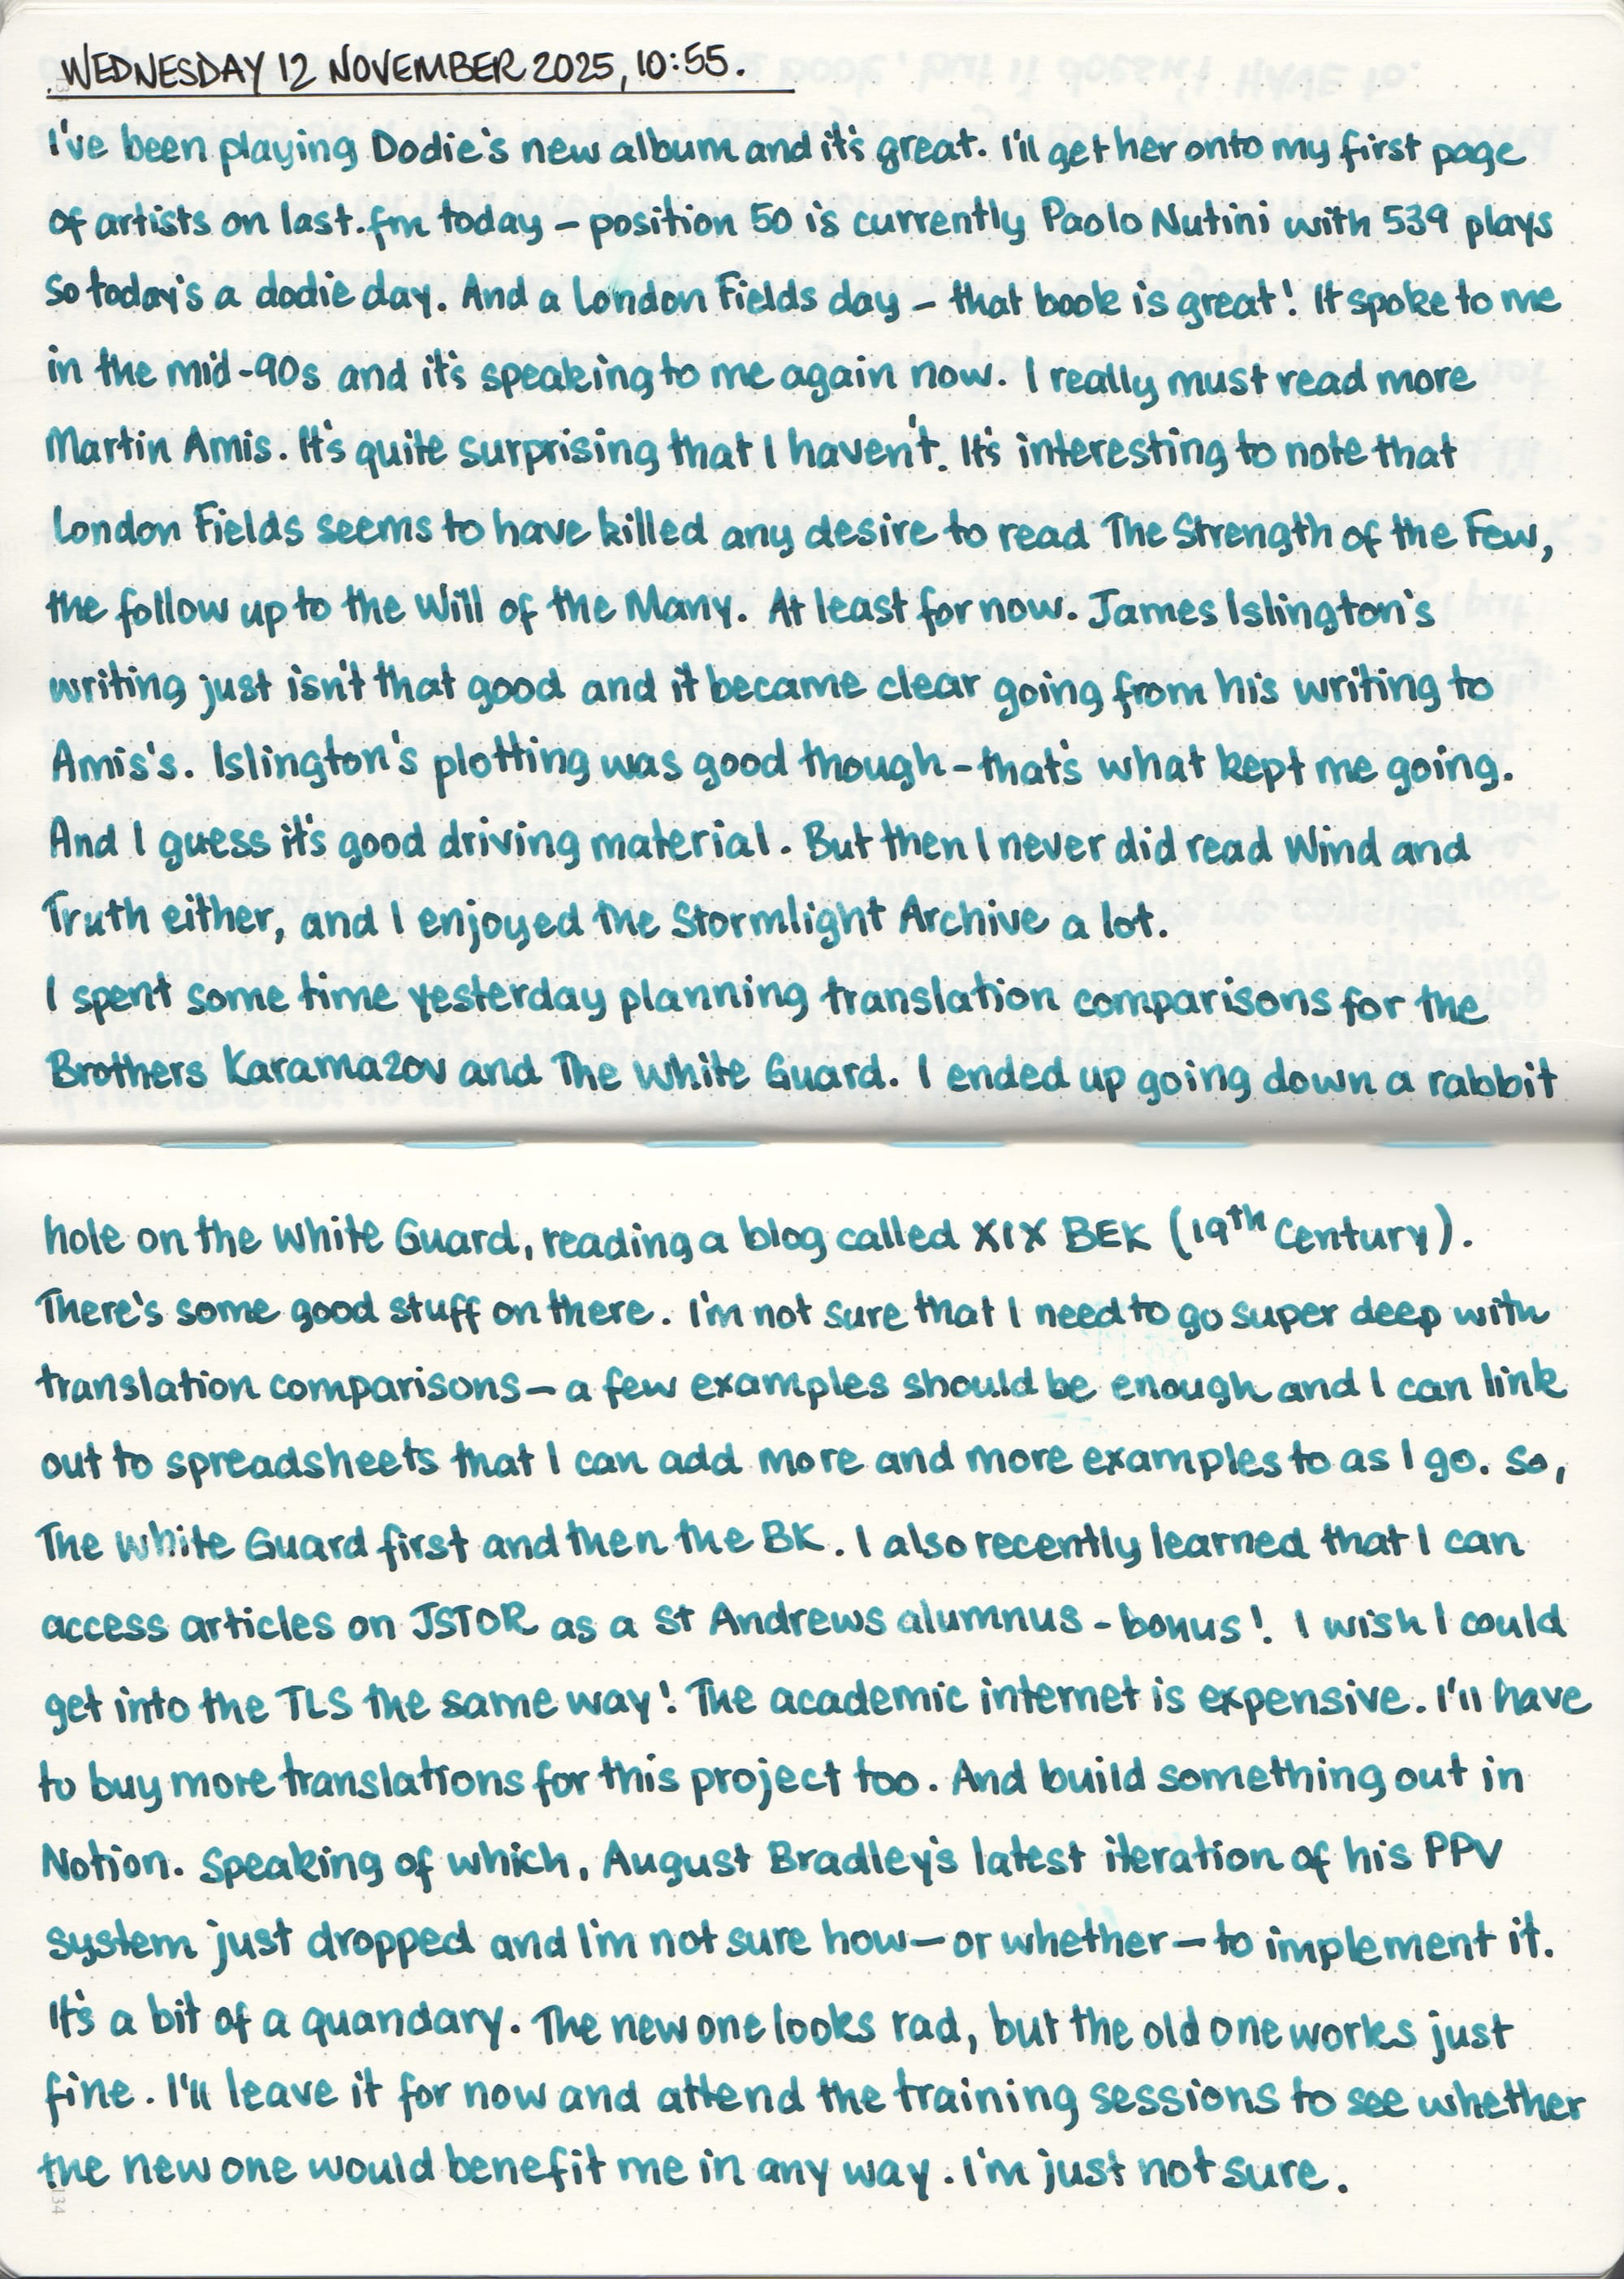 WEDNESDAY 12 NOVEMBER 2025, 10:55.
I've been playing Dodie's new album and it's great. I'll get her onto my first page
of artists on last.fm today – position 50 is currently Paolo Nutini with 539 plays
so today's a dodie day. And a London Fields day – that book is great! It spoke to me
in the mid-90s and it's speaking to me again now. I really must read more
Martin Amis. It's quite surprising that I haven't. It's interesting to note that
London Fields seems to have killed any desire to read The Strength of the Few,
the follow up to the Will of the Many. At least for now. James Islington's
writing just isn't that good and it became clear going from his writing to
Amis's. Islington's plotting was good though – that's what kept me going.
And I guess it's good driving material. But then I never did read Wind and
Truth either, and I enjoyed the Stormlight Archive a lot.
I spent some time yesterday planning translation comparisons for the
Brothers Karamazov and The White Guard. I ended up going down a rabbit
hole on the White Guard, reading a blog called XIX BEK (19th Century).
There's some good stuff on there. I'm not sure that I need to go super deep with
translation comparisons – a few examples should be enough and I can link
out to spreadsheets that I can add more and more examples to as I go. So,
The White Guard first and then the BK. I also recently learned that I can
access articles on JSTOR as a St Andrews alumnus - bonus! I wish I could
get into the TLS the same way! The academic internet is expensive. I'll have
to buy more translations for this project too. And build something out in
Notion. Speaking of which, August Bradley's latest iteration of his PPV
system just dropped and I'm not sure how – or whether – to implement it.
It's a bit of a quandary. The new one looks rad, but the old one works just
fine. I'll leave it for now and attend the training sessions to see whether
the new one would benefit me in any way. I'm just not sure.
134